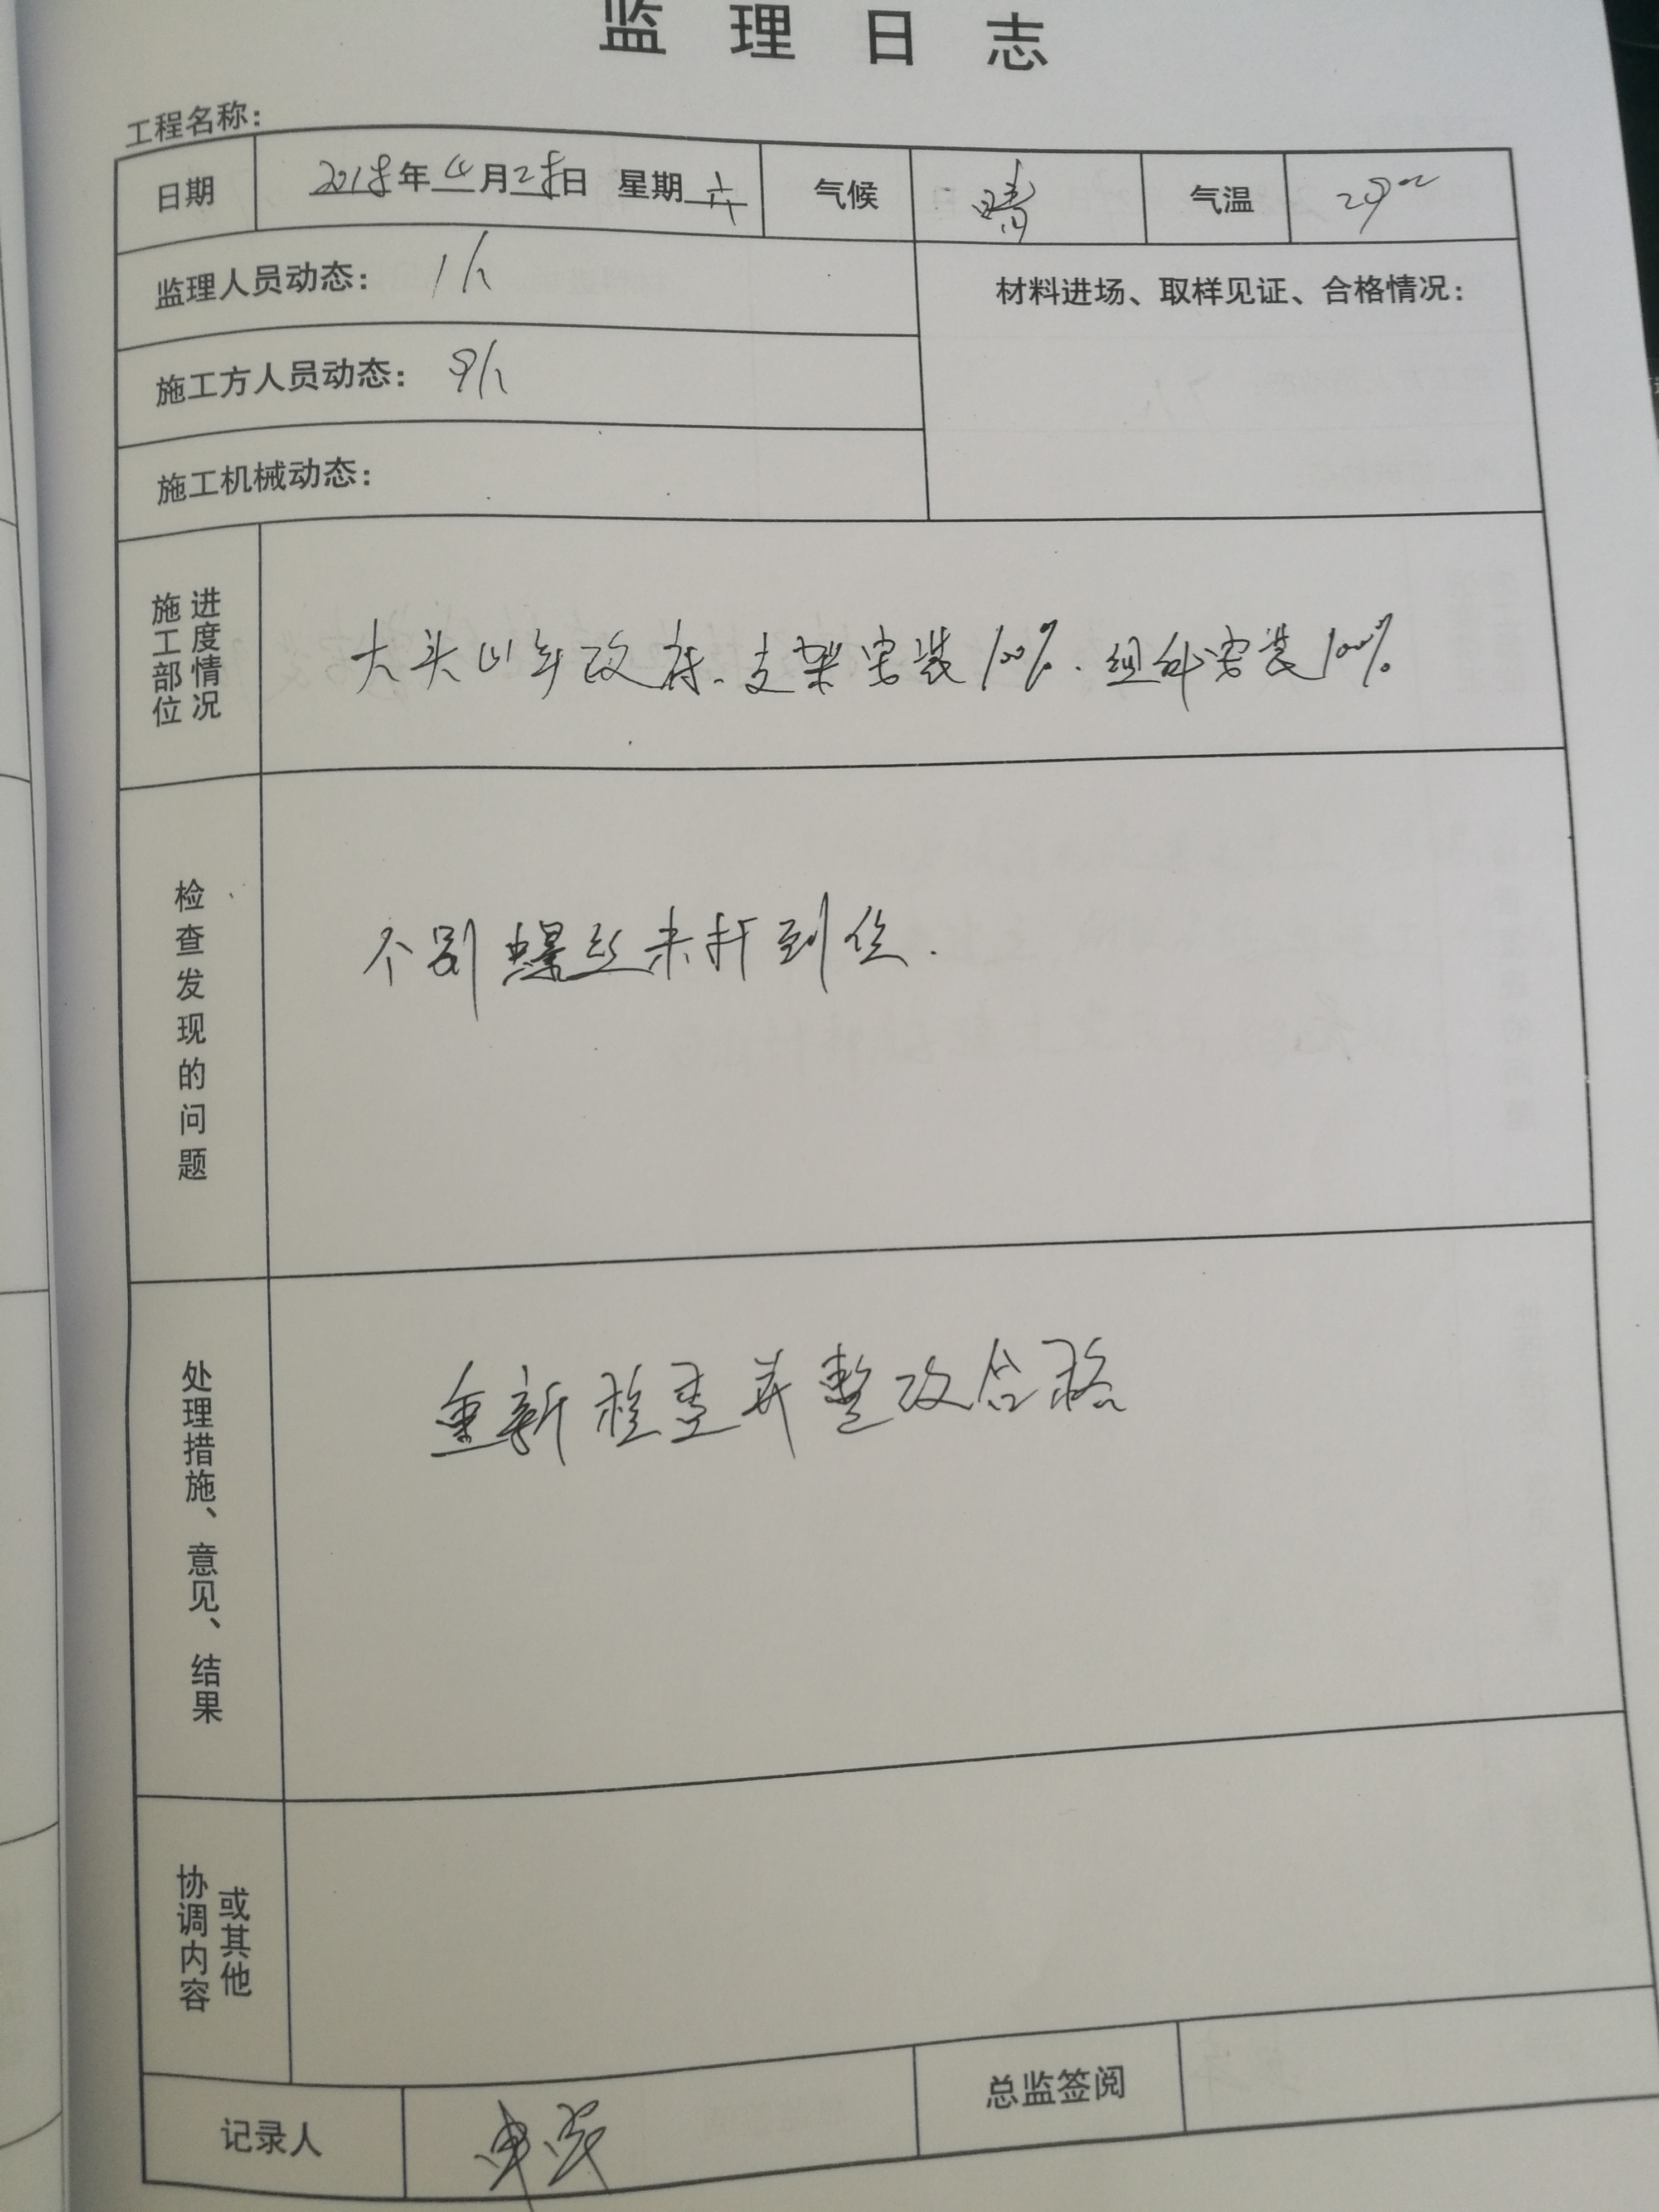 监理日志
工程名称:
日期 2018年4月28日 星期六 气候 晴 气温 29℃
监理人员动态: 1人
材料进场、取样见证、合格情况:
施工方人员动态: 9人
施工机械动态:
施工部位
进度情况
大头山 支架安装100%. 组件安装100%
检查发现的问题
个别螺丝未打到位.
处理措施、意见、结果
重新检查并整改合格
协调内容
或其他
记录人
总监签阅